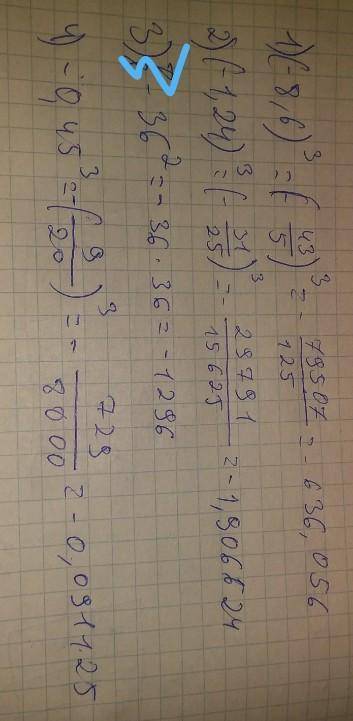 1) (-8,6)³ = (-43/5)³ = -79507/125 = -636,056
2) (-1,24)³ = (-31/25)³ = -29791/15625 = -1,906624
3) -36² = -36·36 = -1296
4) -0,45³ = -(9/20)³ = -729/8000 = -0,091125